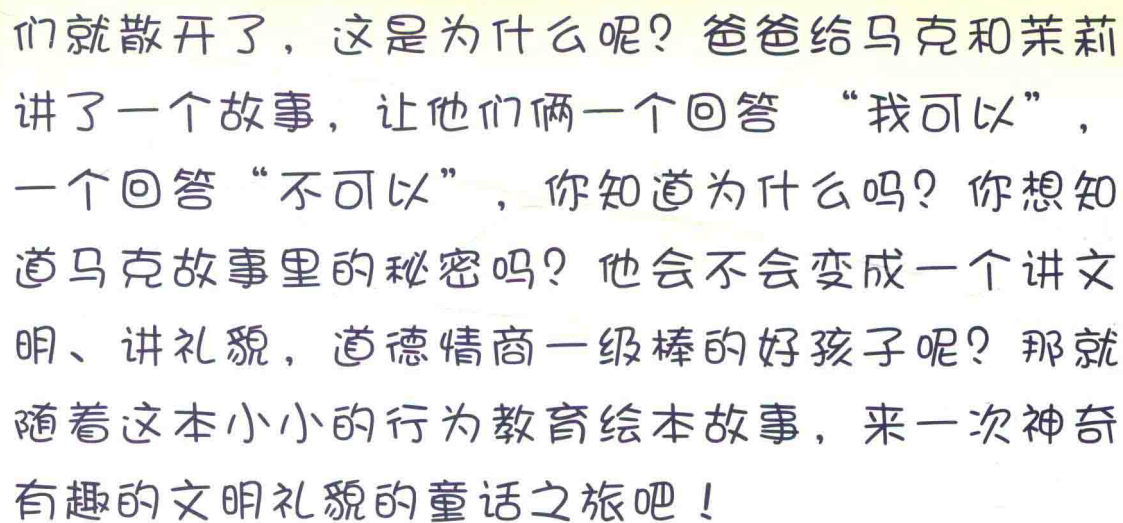 们就散开了，这是为什么呢？爸爸给马克和茉莉
讲了一个故事，让他们俩一个回答 “我可以”，
一个回答“不可以”，你知道为什么吗？你想知
道马克故事里的秘密吗？他会不会变成一个讲文
明、讲礼貌，道德情商一级棒的好孩子呢？那就
随着这本小小的行为教育绘本故事，来一次神奇
有趣的文明礼貌的童话之旅吧！